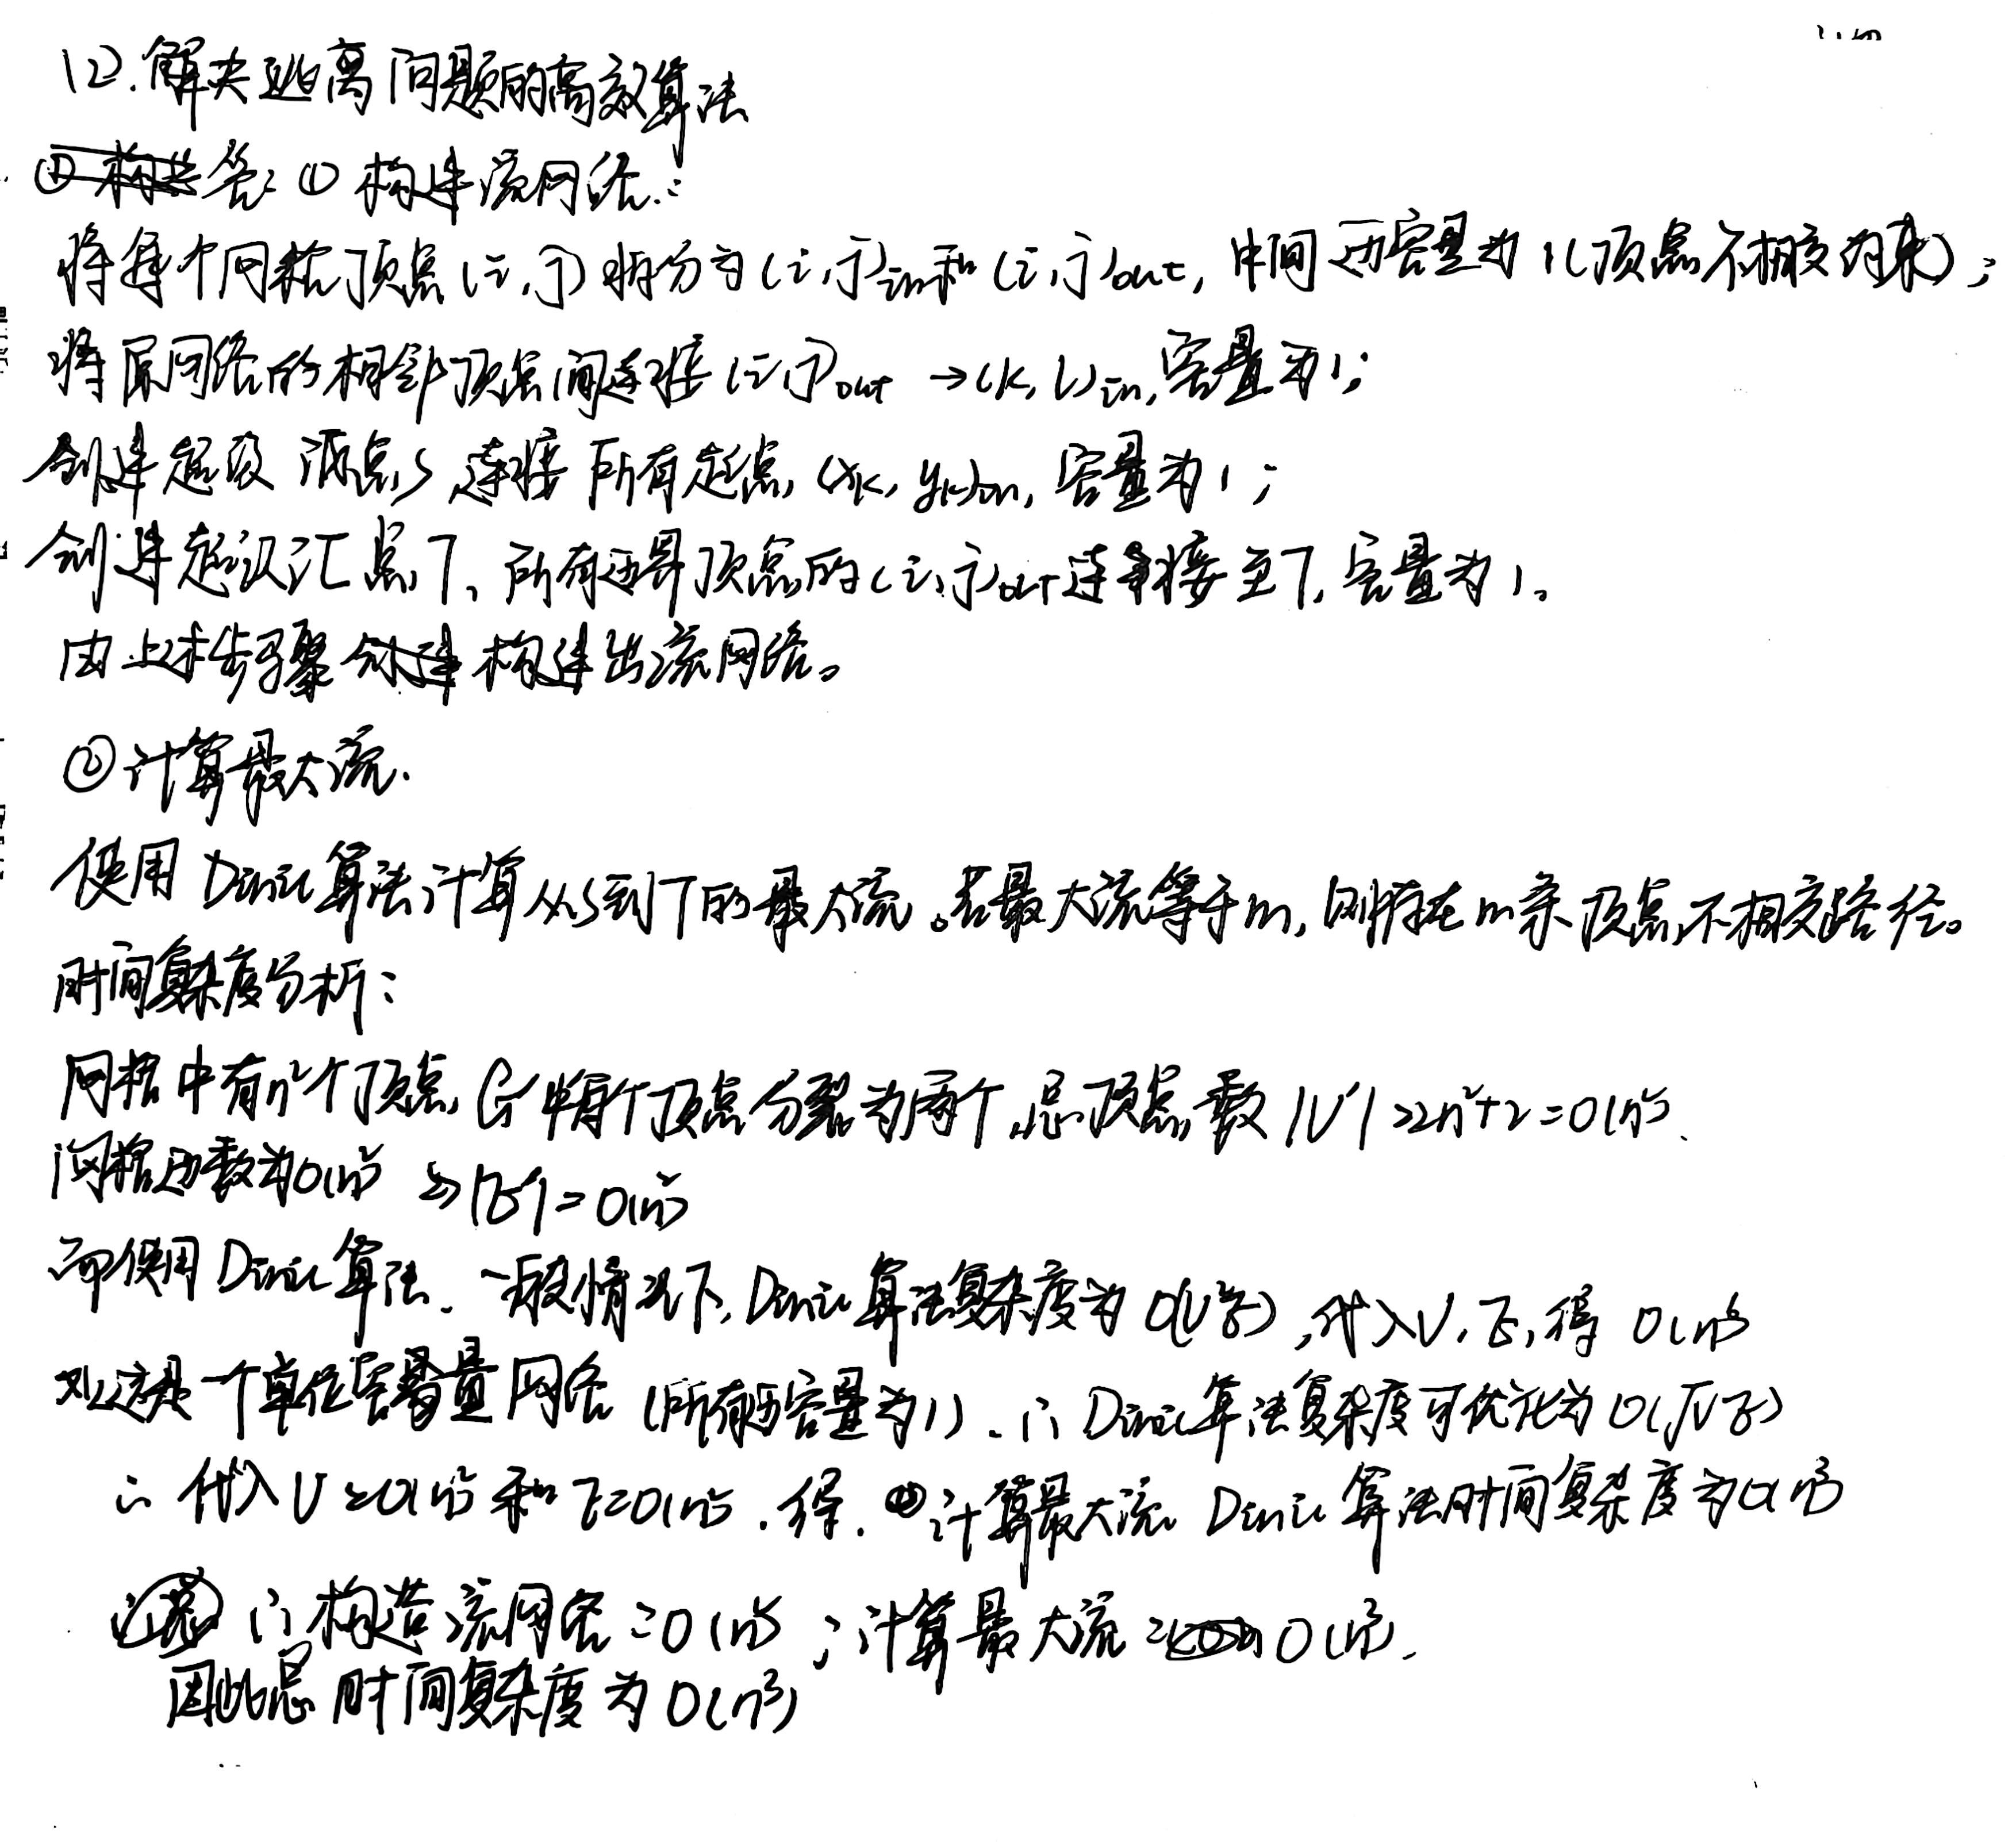 (2).解决逃离问题的高效算法
答: ① 构建流网络:
将每个网格顶点(i,j)拆分为(i,j)in和(i,j)out, 中间边容量为1(顶点不相交约束);
将原网络的相邻顶点间连接(i,j)out →(k,l)in,容量为1;
创建超级源点S连接所有起点(xk,yk)in,容量为1;
创建超级汇点T,所有边界顶点的(i,j)out连接至T,容量为1。
由上述步骤构建出流网络。
②计算最大流.
使用Dinic算法计算从S到T的最大流。若最大流等于m,则存在m条顶点不相交路径。
时间复杂度分析:
网格中有n²个顶点,G'中每个顶点分裂为两个,总顶点数|V'|=2n²+2=O(n²).
网格边数为O(n²) ⇒|E'|=O(n²)
而使用Dinic算法.一般情况下,Dinic算法复杂度为O(V²E),代入V,E,得O(n⁶)
又这是一个单位容量网络(所有边容量为1).∴Dinic算法复杂度可优化为O(√V E)
∴代入V=O(n²)和E=O(n²).得.②计算最大流Dinic算法时间复杂度为O(n³)
∴构造流网络=O(n²);计算最大流=O(n³).
因此总时间复杂度为O(n³)